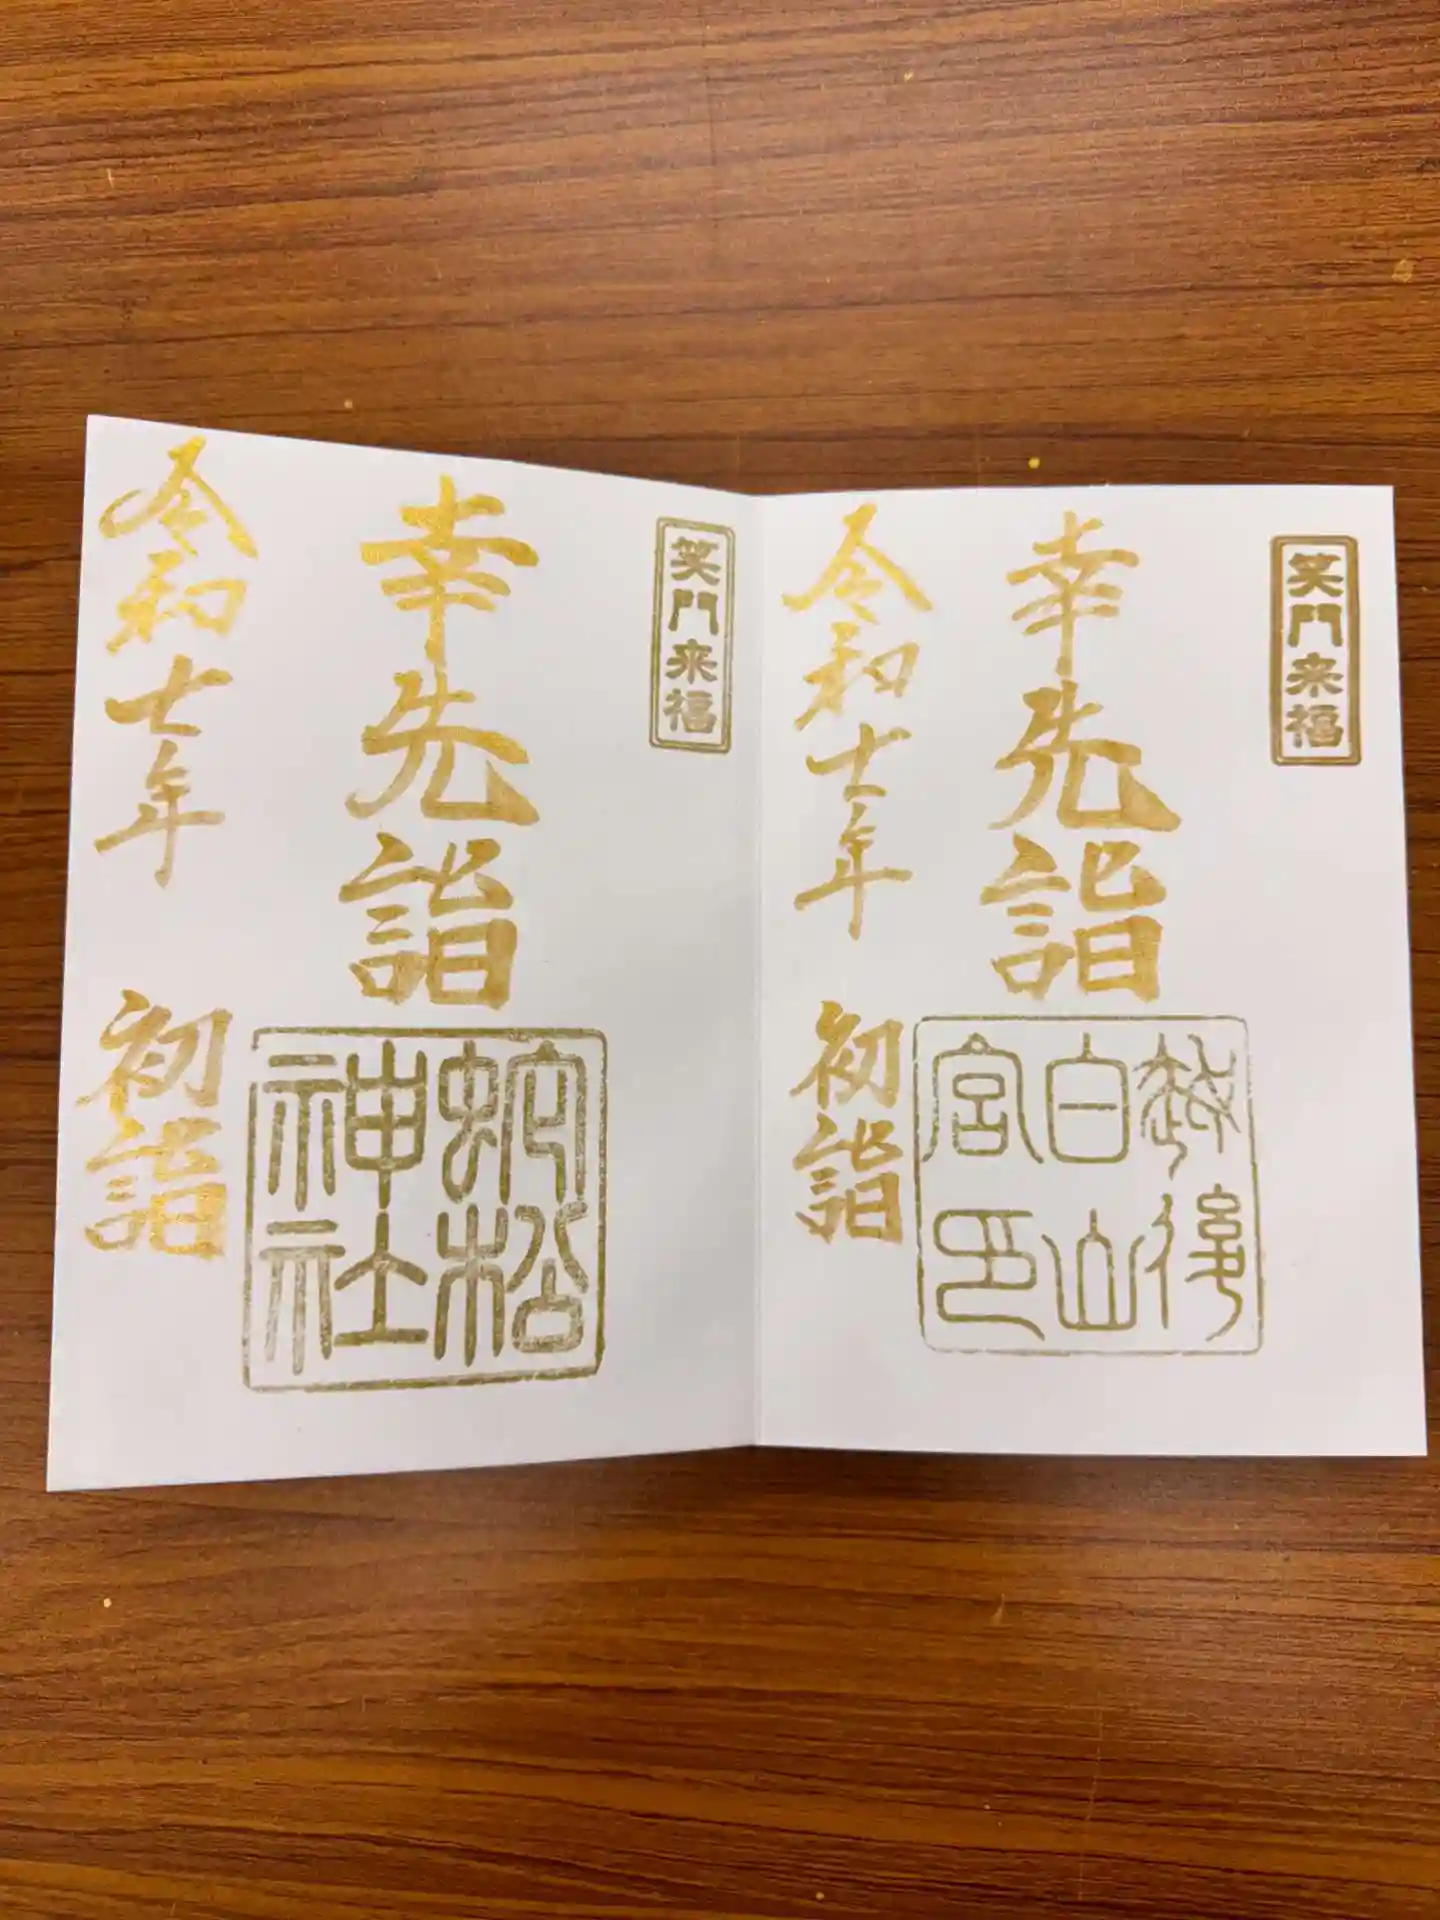 笑門来福
幸先詣
越後
白山
宮印
令和七年 初詣
笑門来福
幸先詣
蛇松
神社
令和七年 初詣